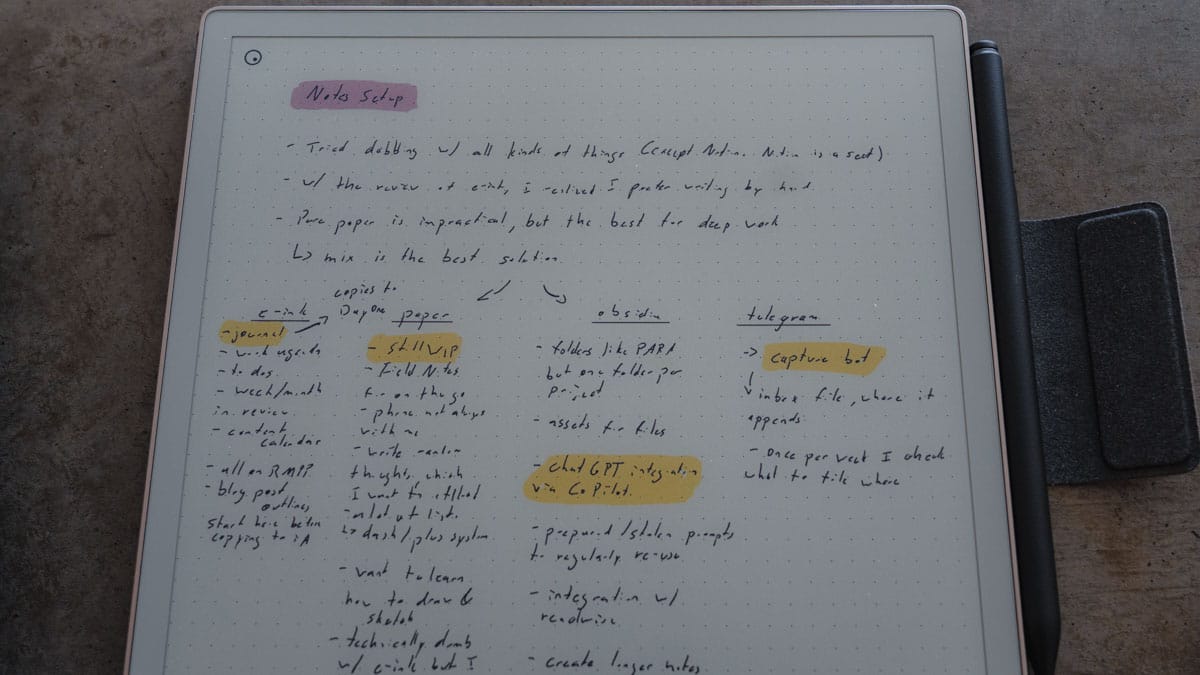 Notes Setup
- Tried dabbling w/ all kinds of things (except Notion. Notion is a sect)
- w/ the review of e-ink, I realized I prefer writing by hand
- Pure paper is impractical, but the best for deep work
↳ mix is the best solution
copies to
Day One
e-ink
- journal
- work agenda
- to dos
- week/month
in review
- content
calendar
- all on RMPP
- blog post
outlines
start here before
copying to iA
paper
- still VIP
- Field Notes
for on the go
- phone not always
with me
- write random
thoughts, which
I want to
- a lot of lists
↳ dash/plus system
- want to learn
how to draw &
sketch
- technically dumb
w/ e-ink but I
obsidian
- folders like PARA
but one folder per
project
- assets for files
- ChatGPT integration
via CoPilot
- prepared/stolen prompts
to regularly re-use
- integration w/
readwise
- create longer notes
telegram
-> capture bot
inbox file, where it
appends
- once per week I check
what to file where